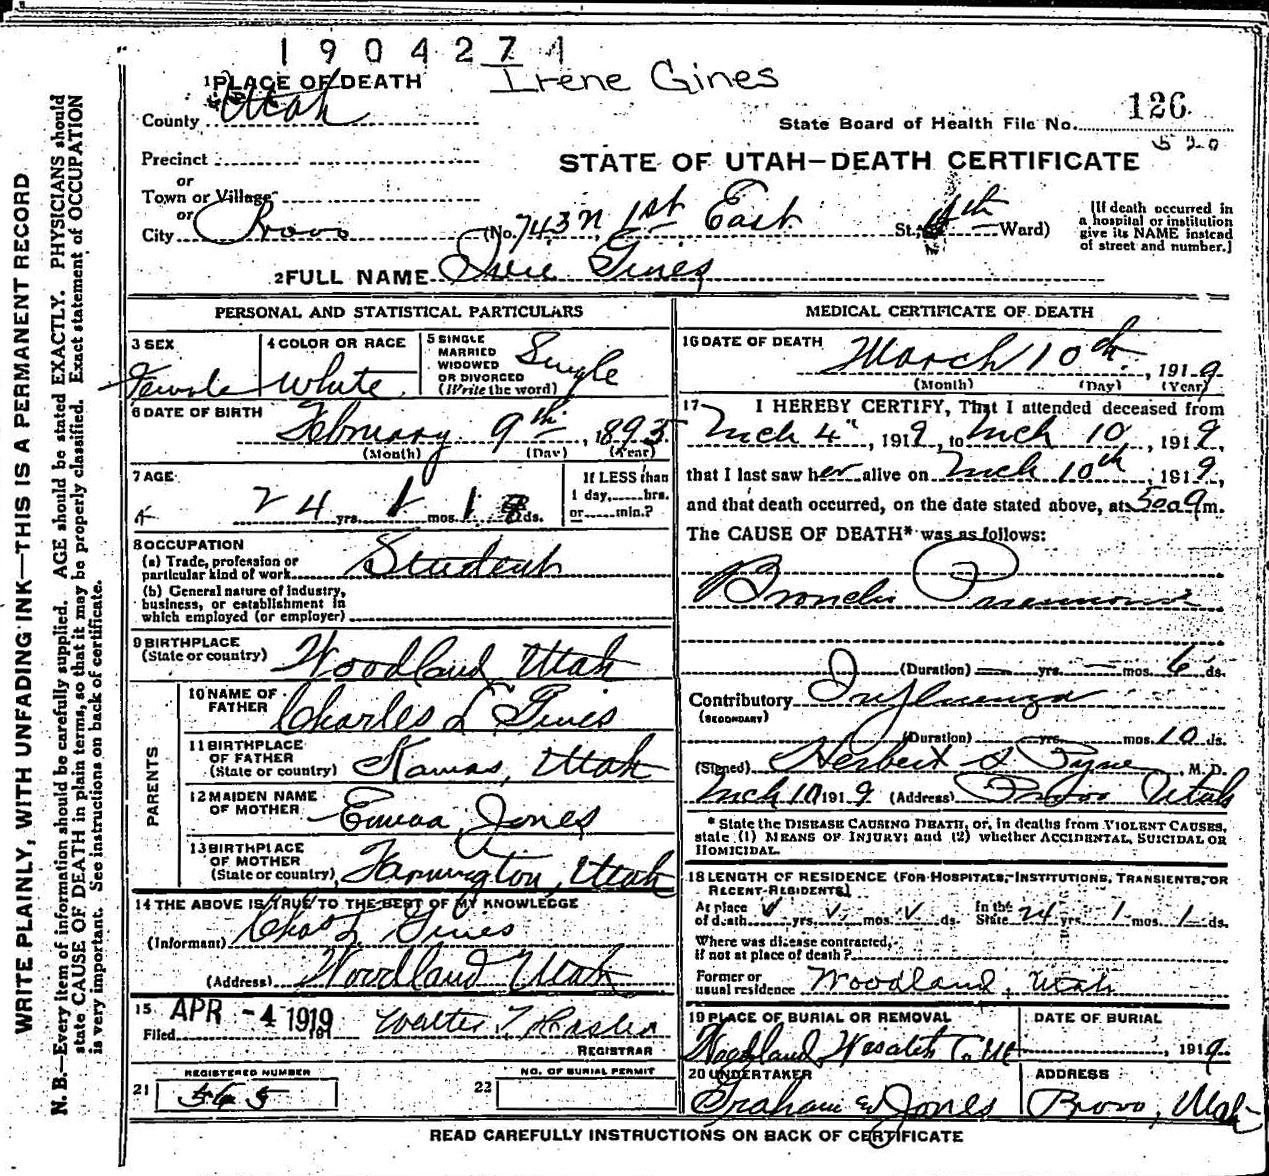 1904274
Irene Gines
1 PLACE OF DEATH
County Utah
State Board of Health File No. 126
520
Precinct
STATE OF UTAH—DEATH CERTIFICATE
or
Town or Village
or
City Provo (No. 743 N 1st East St. 4th Ward)
[If death occurred in a hospital or institution give its NAME instead of street and number.]
2 FULL NAME Irene Gines
PERSONAL AND STATISTICAL PARTICULARS
3 SEX Female
4 COLOR OR RACE White
5 SINGLE MARRIED WIDOWED OR DIVORCED (Write the word) Single
6 DATE OF BIRTH February 9th, 1895
(Month) (Day) (Year)
7 AGE 24 yrs. 1 mos. 1 ds.
If LESS than 1 day, hrs. or min.?
8 OCCUPATION
(a) Trade, profession or particular kind of work Student
(b) General nature of industry, business, or establishment in which employed (or employer)
9 BIRTHPLACE (State or country) Woodland Utah
PARENTS
10 NAME OF FATHER Charles L Gines
11 BIRTHPLACE OF FATHER (State or country) Kamas, Utah
12 MAIDEN NAME OF MOTHER Emma Jones
13 BIRTHPLACE OF MOTHER (State or country) Farmington, Utah
14 THE ABOVE IS TRUE TO THE BEST OF MY KNOWLEDGE
(Informant) Chas L Gines
(Address) Woodland Utah
15 Filed APR -4 1919 191 Walter T
REGISTRAR
REGISTERED NUMBER
21 365
NO. OF BURIAL PERMIT
22
MEDICAL CERTIFICATE OF DEATH
16 DATE OF DEATH March 10th, 1919
(Month) (Day) (Year)
17 I HEREBY CERTIFY, That I attended deceased from
Mch 4", 1919, to Mch 10, 1919,
that I last saw her alive on Mch 10th, 1919,
and that death occurred, on the date stated above, at 5 00 a m.
The CAUSE OF DEATH* was as follows:
Broncho Pneumonia
(Duration) — yrs. — mos. 6 ds.
Contributory Influenza
(SECONDARY)
(Duration) yrs. mos. 10 ds.
(Signed) Herbert S Pyne, M. D.
Mch 10 1919 (Address) Provo Utah
* State the DISEASE CAUSING DEATH, or, in deaths from VIOLENT CAUSES, state (1) MEANS OF INJURY; and (2) whether ACCIDENTAL, SUICIDAL OR HOMICIDAL.
18 LENGTH OF RESIDENCE (FOR HOSPITALS, INSTITUTIONS, TRANSIENTS, OR RECENT RESIDENTS)
At place of death yrs. mos. ds. In the State 24 yrs. 1 mos. 1 ds.
Where was disease contracted, if not at place of death?
Former or usual residence Woodland, Utah
19 PLACE OF BURIAL OR REMOVAL Woodland Wasatch Co. Ut
DATE OF BURIAL , 1919
20 UNDERTAKER Graham & Jones
ADDRESS Provo, Utah
READ CAREFULLY INSTRUCTIONS ON BACK OF CERTIFICATE
WRITE PLAINLY, WITH UNFADING INK—THIS IS A PERMANENT RECORD
N. B.—Every item of information should be carefully supplied. AGE should be stated EXACTLY. PHYSICIANS should
state CAUSE OF DEATH in plain terms, so that it may be properly classified. Exact statement of OCCUPATION
is very important. See instructions on back of certificate.